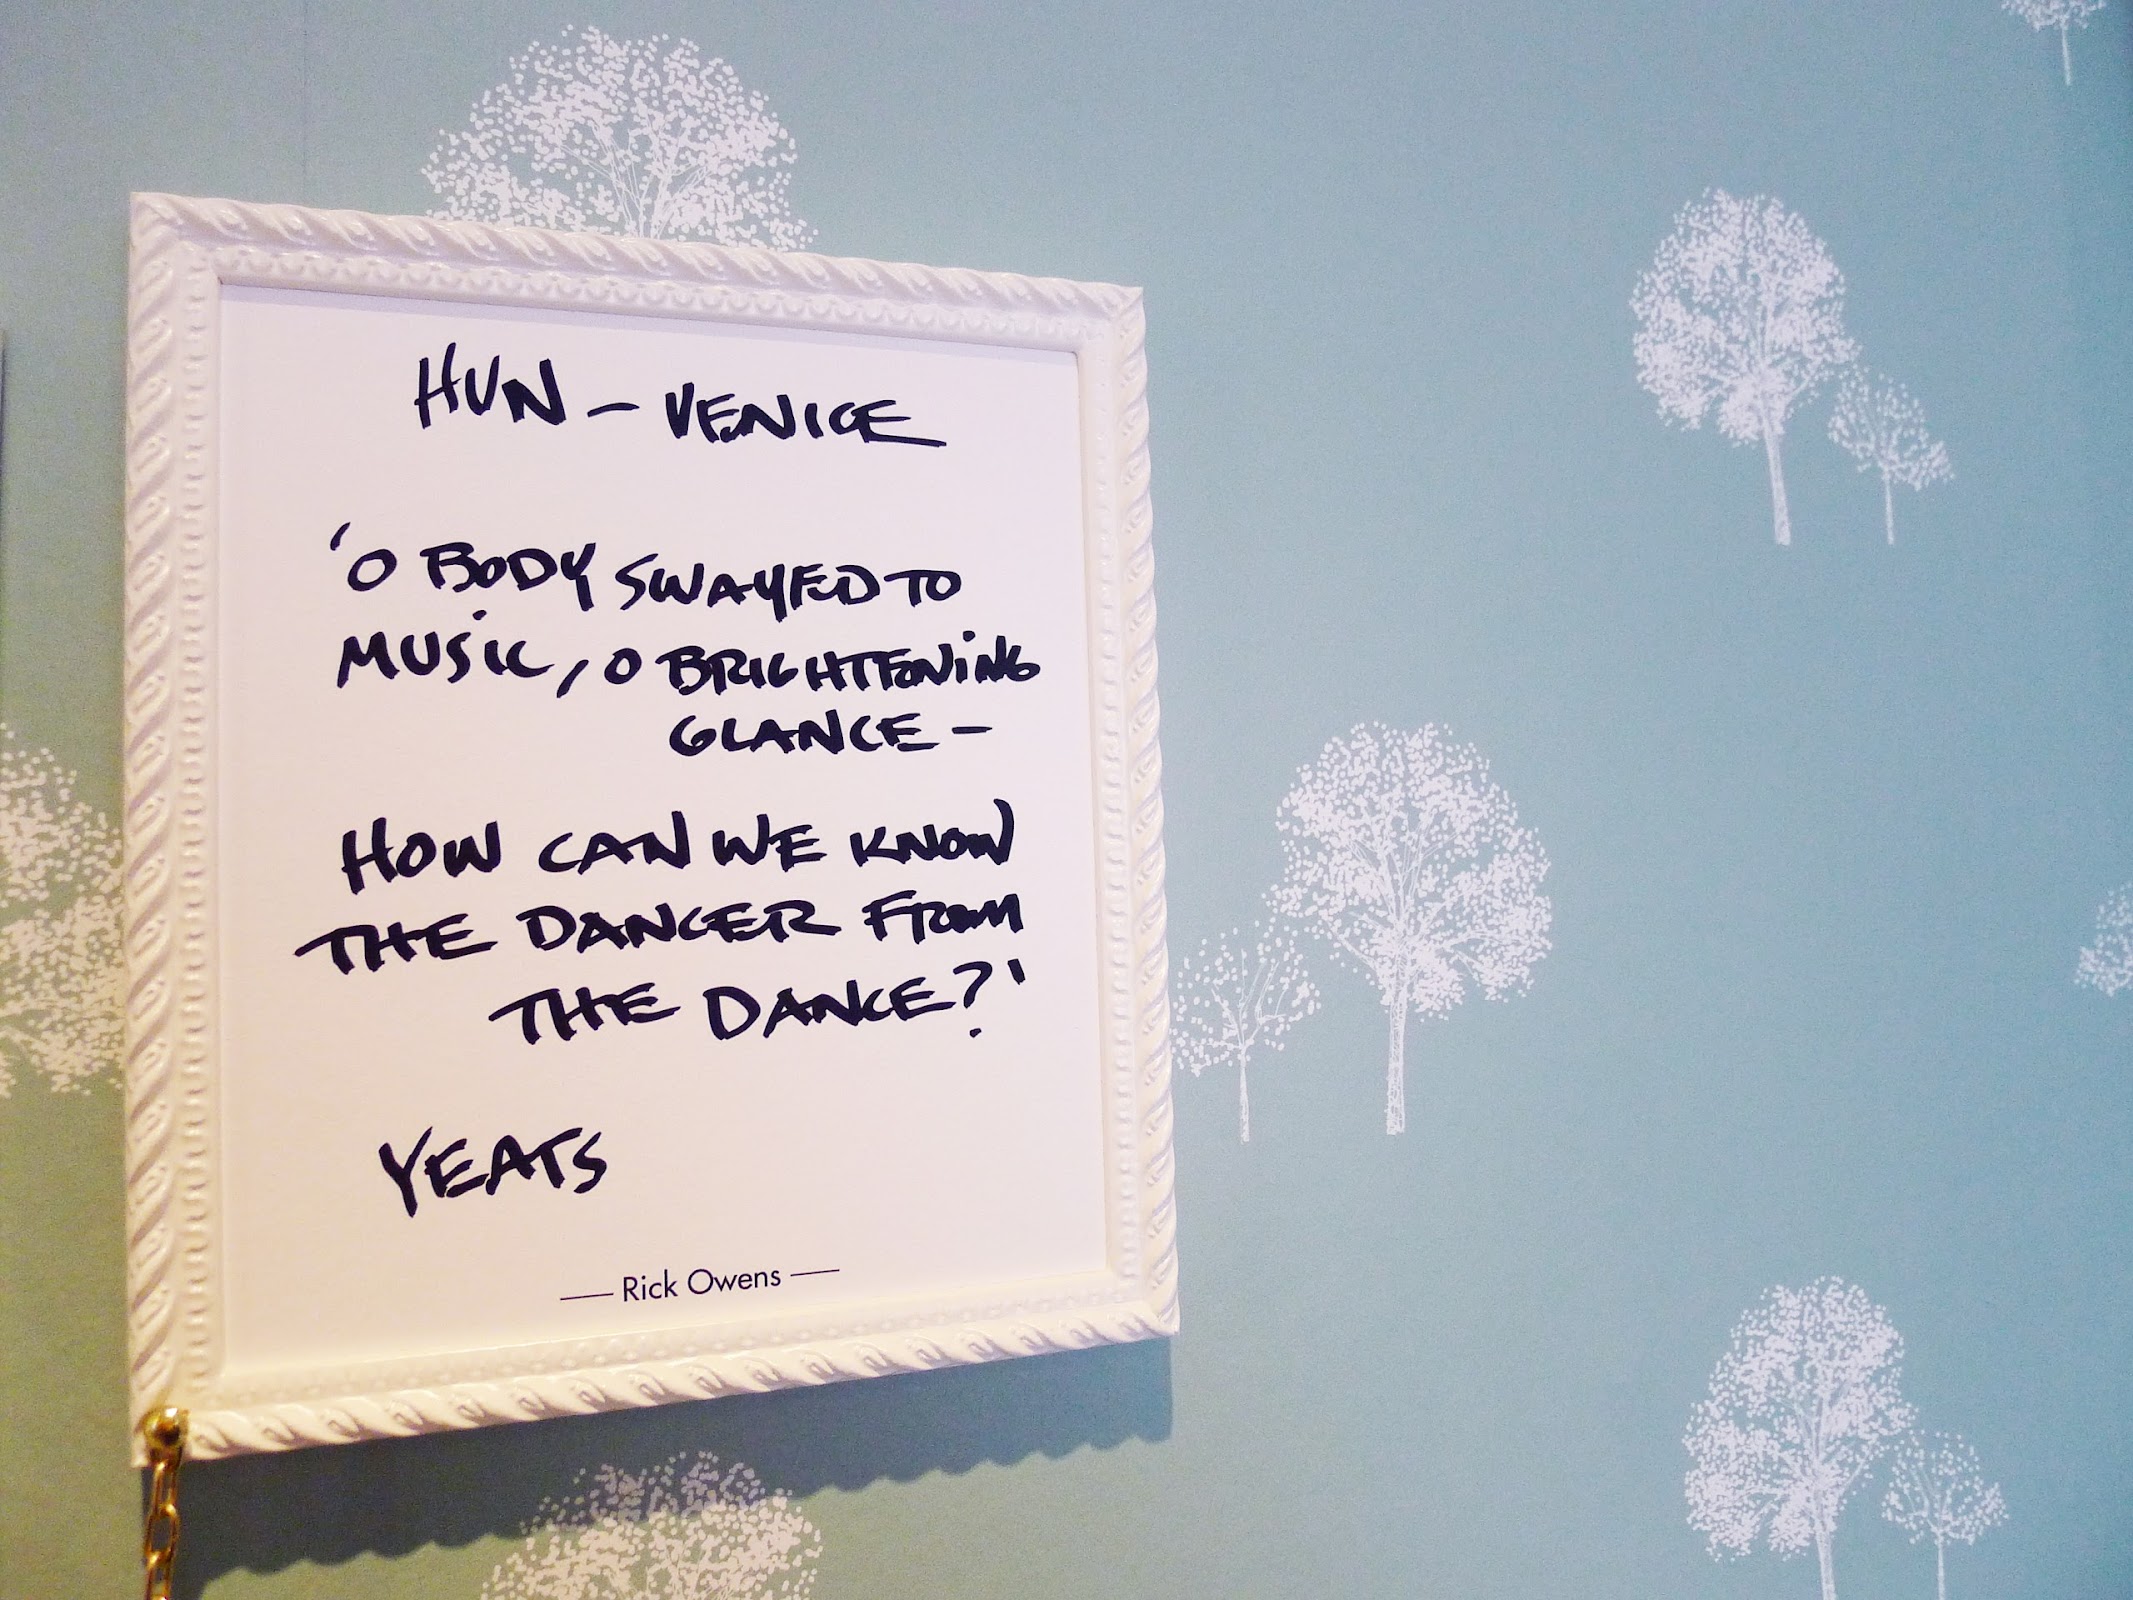 HUN - VENICE
'O BODY SWAYED TO
MUSIC, O BRIGHTENING
GLANCE -
HOW CAN WE KNOW
THE DANCER FROM
THE DANCE?'
YEATS
— Rick Owens —